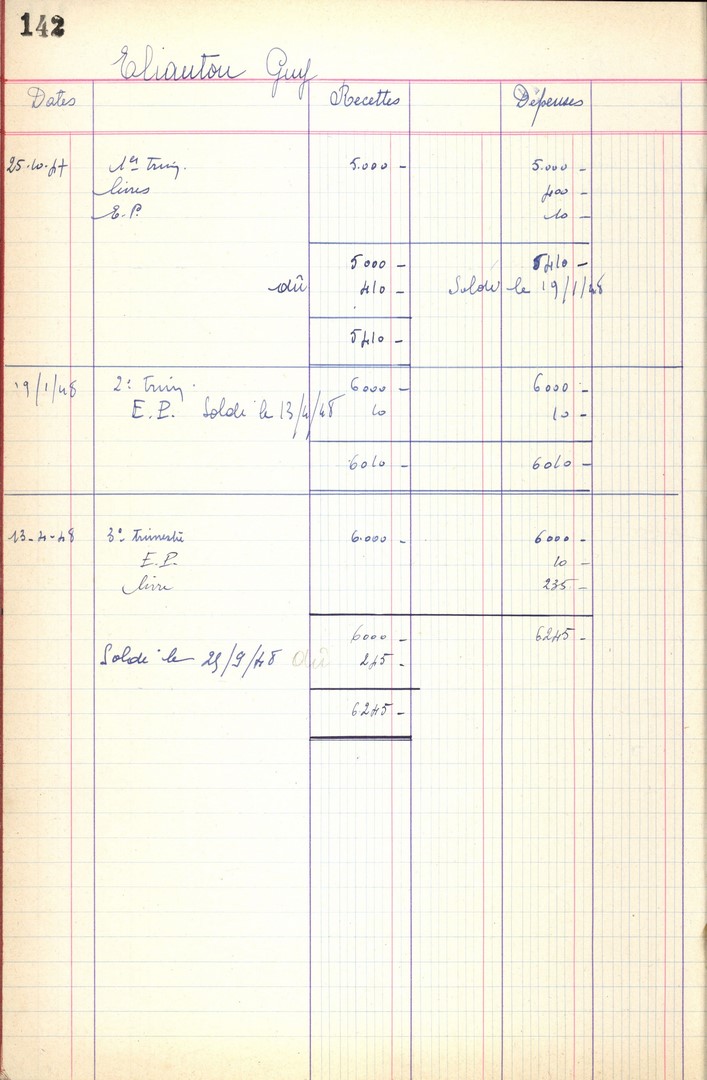 142
Elianton Guy
Dates Recettes Dépenses
25-10-47 1er trim. 5.000 - 5.000 -
livres 400 -
E.P. 10 -
5000 - 5410 -
dû 410 - Soldé le 19/1/48
5410 -
19/1/48 2e trim. 6000 - 6000 -
E.P. Soldé le 13/4/48 10 10 -
6010 - 6010 -
13-4-48 3e trimestre 6.000 - 6000 -
E.P. 10 -
livre 235 -
6000 - 6245 -
Soldé le 29/9/48 dû 245 -
6245 -